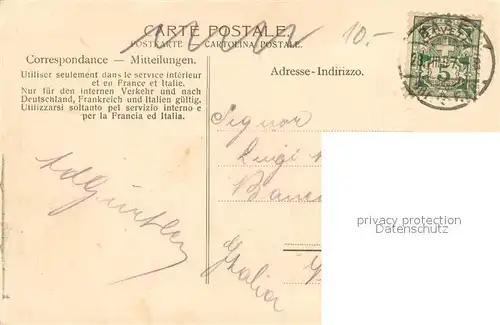 CARTE POSTALE.
POSTKARTE CARTOLINA POSTALE.
10.-
Correspondance — Mitteilungen.
Utiliser seulement dans le service intérieur
et en France et Italie.
Nur für den internen Verkehr und nach
Deutschland, Frankreich und Italien gültig.
Utilizzarsi soltanto pel servizio interno e
per la Francia ed Italia.
Adresse-Indirizzo.
5
Signor
Luigi
Italia
privacy protection
Datenschutz